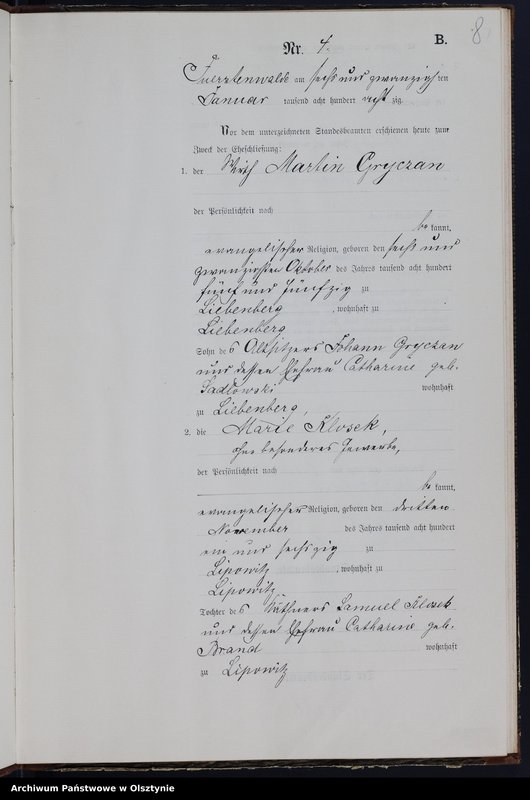 8
Nr. 4. B.
Fuerstenwalde am sechs und zwanzigsten
Januar tausend acht hundert acht zig.
Vor dem unterzeichneten Standesbeamten erschienen heute zum
Zweck der Eheschließung:
1. der Wirth Martin Gryczan
der Persönlichkeit nach
be kannt,
evangelischer Religion, geboren den sechs und
zwanzigsten Oktober des Jahres tausend acht hundert
fünf und fünfzig zu
Liebenberg, wohnhaft zu
Liebenberg
Sohn des Altsitzers Johann Gryczan
und dessen Ehefrau Catharine geb.
Sadlowski wohnhaft
zu Liebenberg,
2. die Marie Klosek,
ohne besonderes Gewerbe,
der Persönlichkeit nach
be kannt,
evangelischer Religion, geboren den dritten
November des Jahres tausend acht hundert
ein und sechszig zu
Lipowitz, wohnhaft zu
Lipowitz
Tochter des Käthners Samuel Klosek
und dessen Ehefrau Catharine geb.
Brand wohnhaft
zu Lipowitz
Archiwum Państwowe w Olsztynie